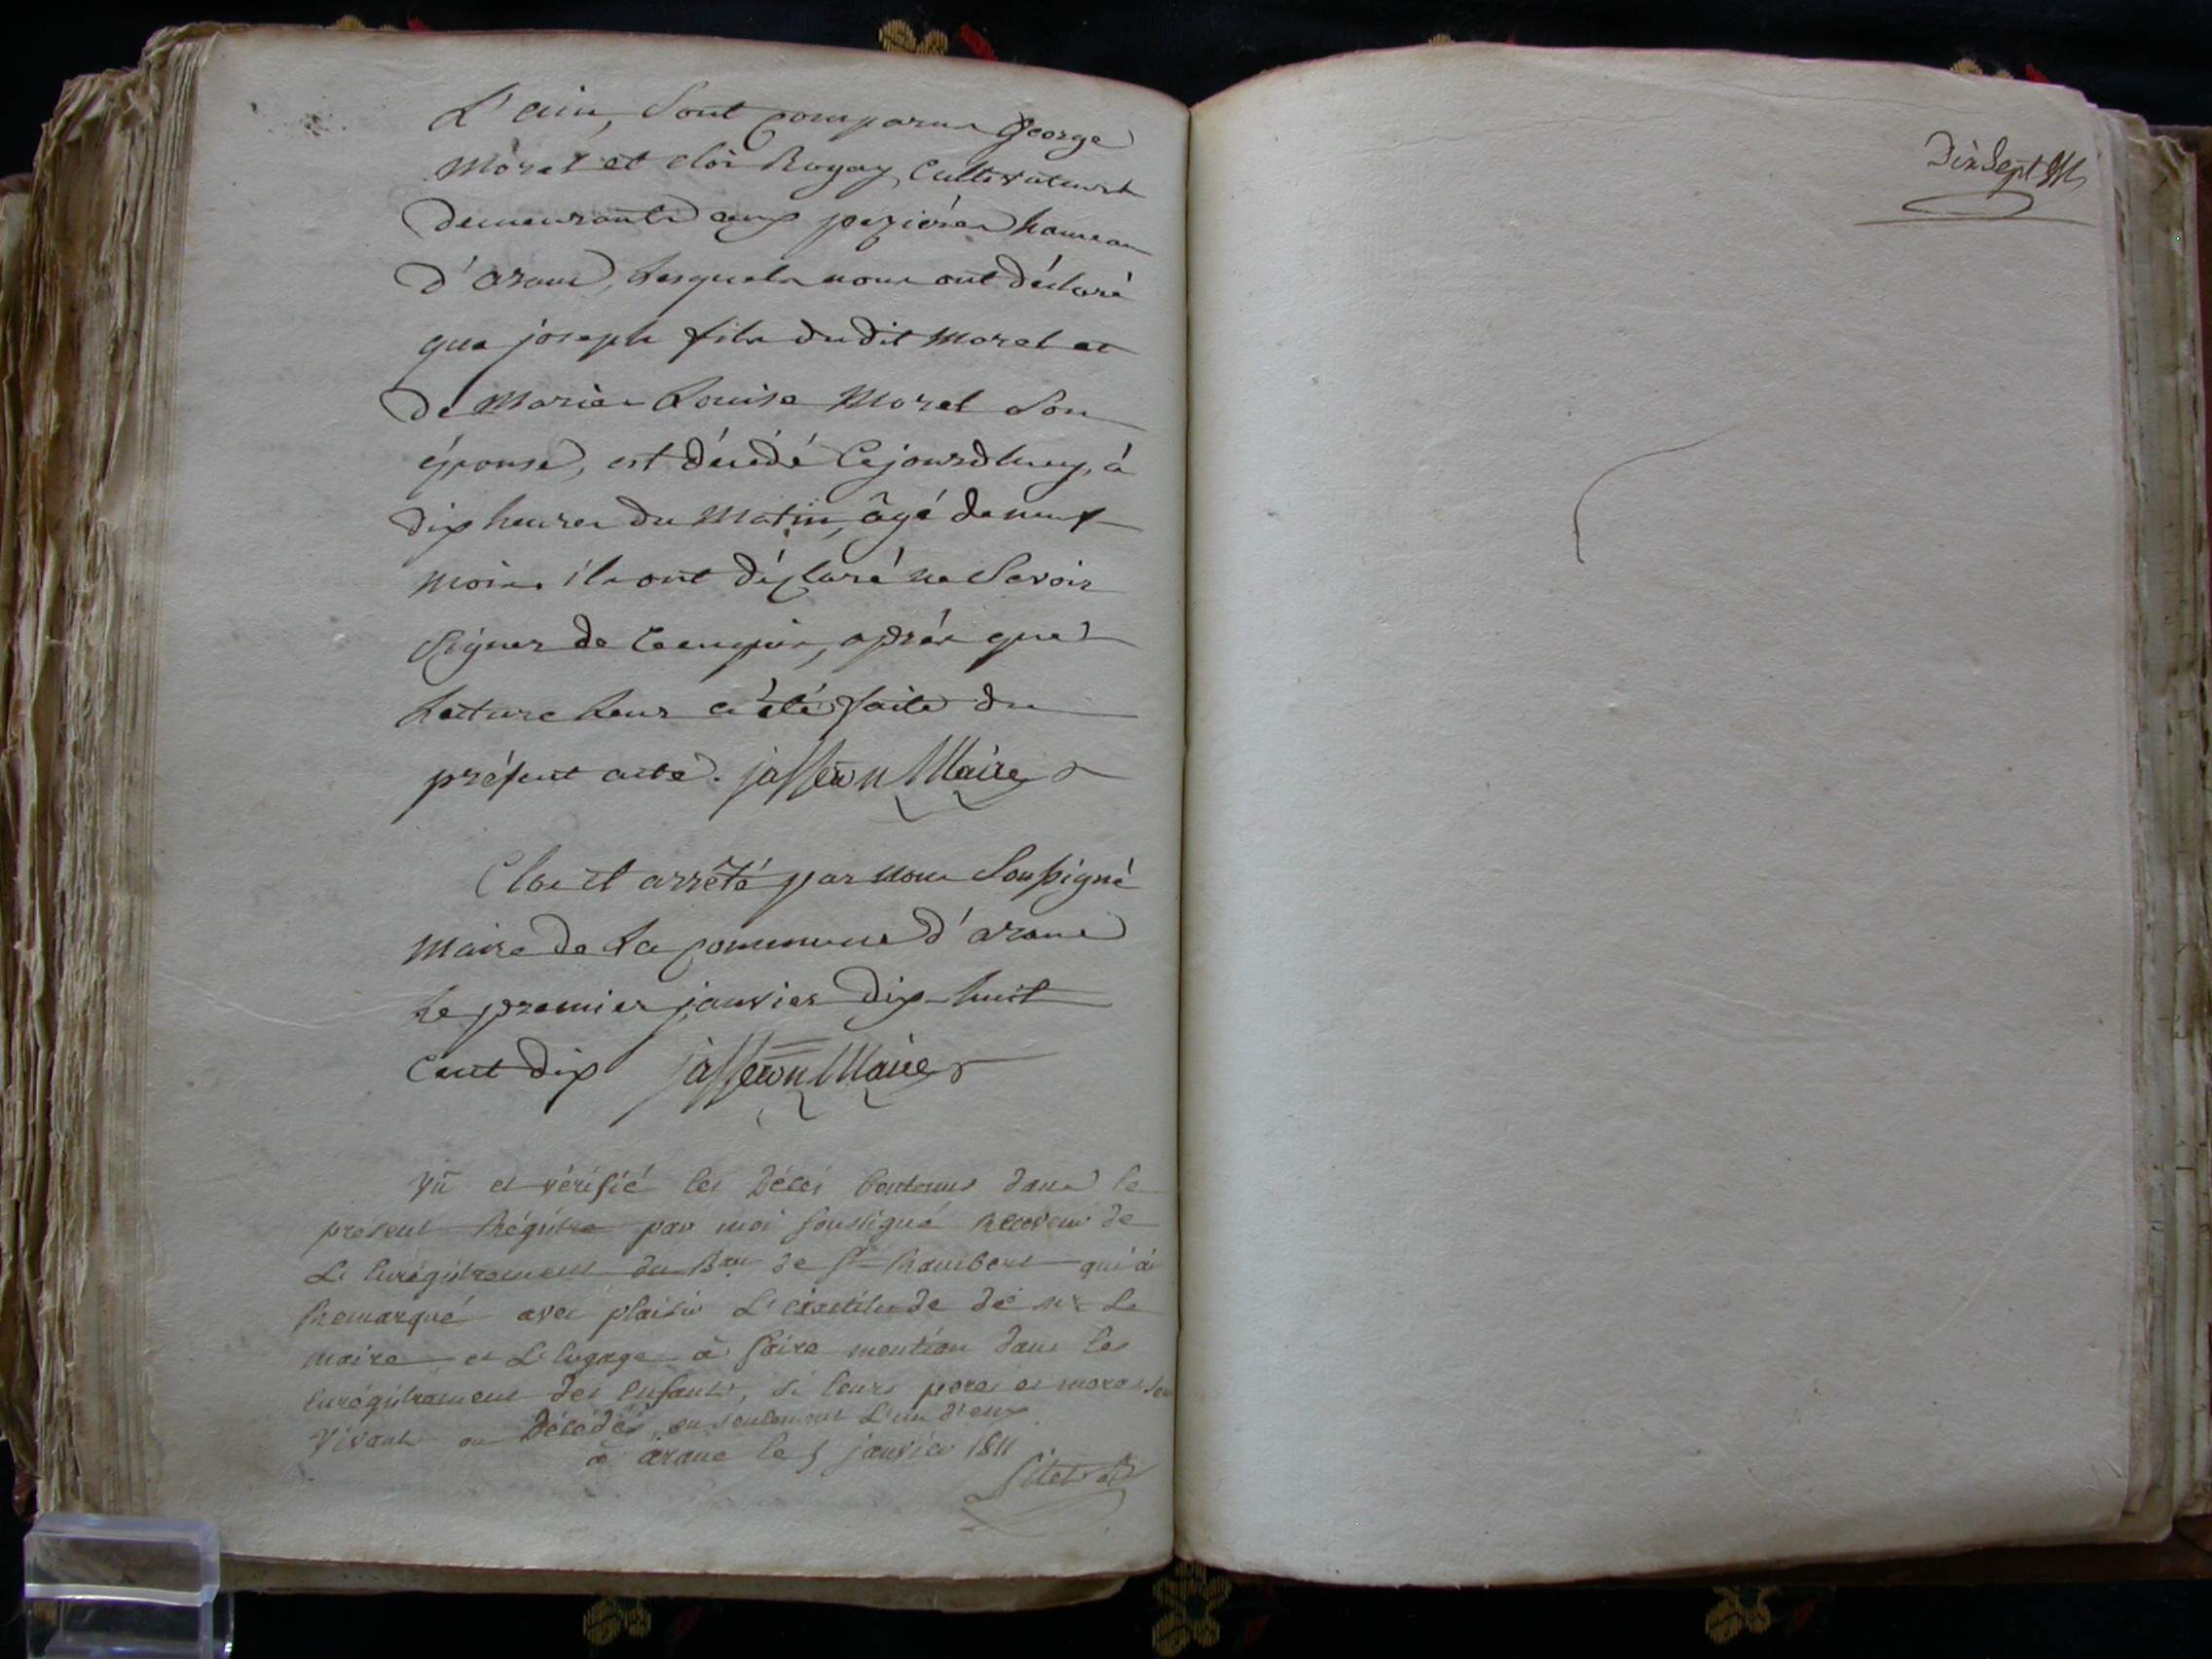 L'ain, Sont comparus George
Morel et cloi Rogay, Cultivateurs
demeurants aux pezières hameau
d'arane, Lesquels nous ont déclaré
que joseph fils du dit Morel et
de Marie Louise Morel Son
épouse, est décédé Cejourdhuy, à
dix heures du Matin, âgé de neuf
mois. ils ont déclaré ne Savoir
Signer de Ce enquis, après que
Lecture Leur a été faite du
présent acte. jasseron Maire
Clos et arrêté par nous Soussigné
maire de La commune d'arane
Le premier janvier dix-huit
Cent dix jasseron Maire
Vû et vérifié les Décés Contenus dans le
present Régitre par moi soussigné Receveur de
L'enrégitrement du Bau de St Rambert qui à
Remarqué avec plaisir L'exactitude de mr Le
maire et L'engage à faire mention dans les
enrégitrement des enfants, si leurs peres et meres sont
vivants ou Décédés, ou seulement L'un d'eux
à arane le 5 janvier 1811
Dix Sept